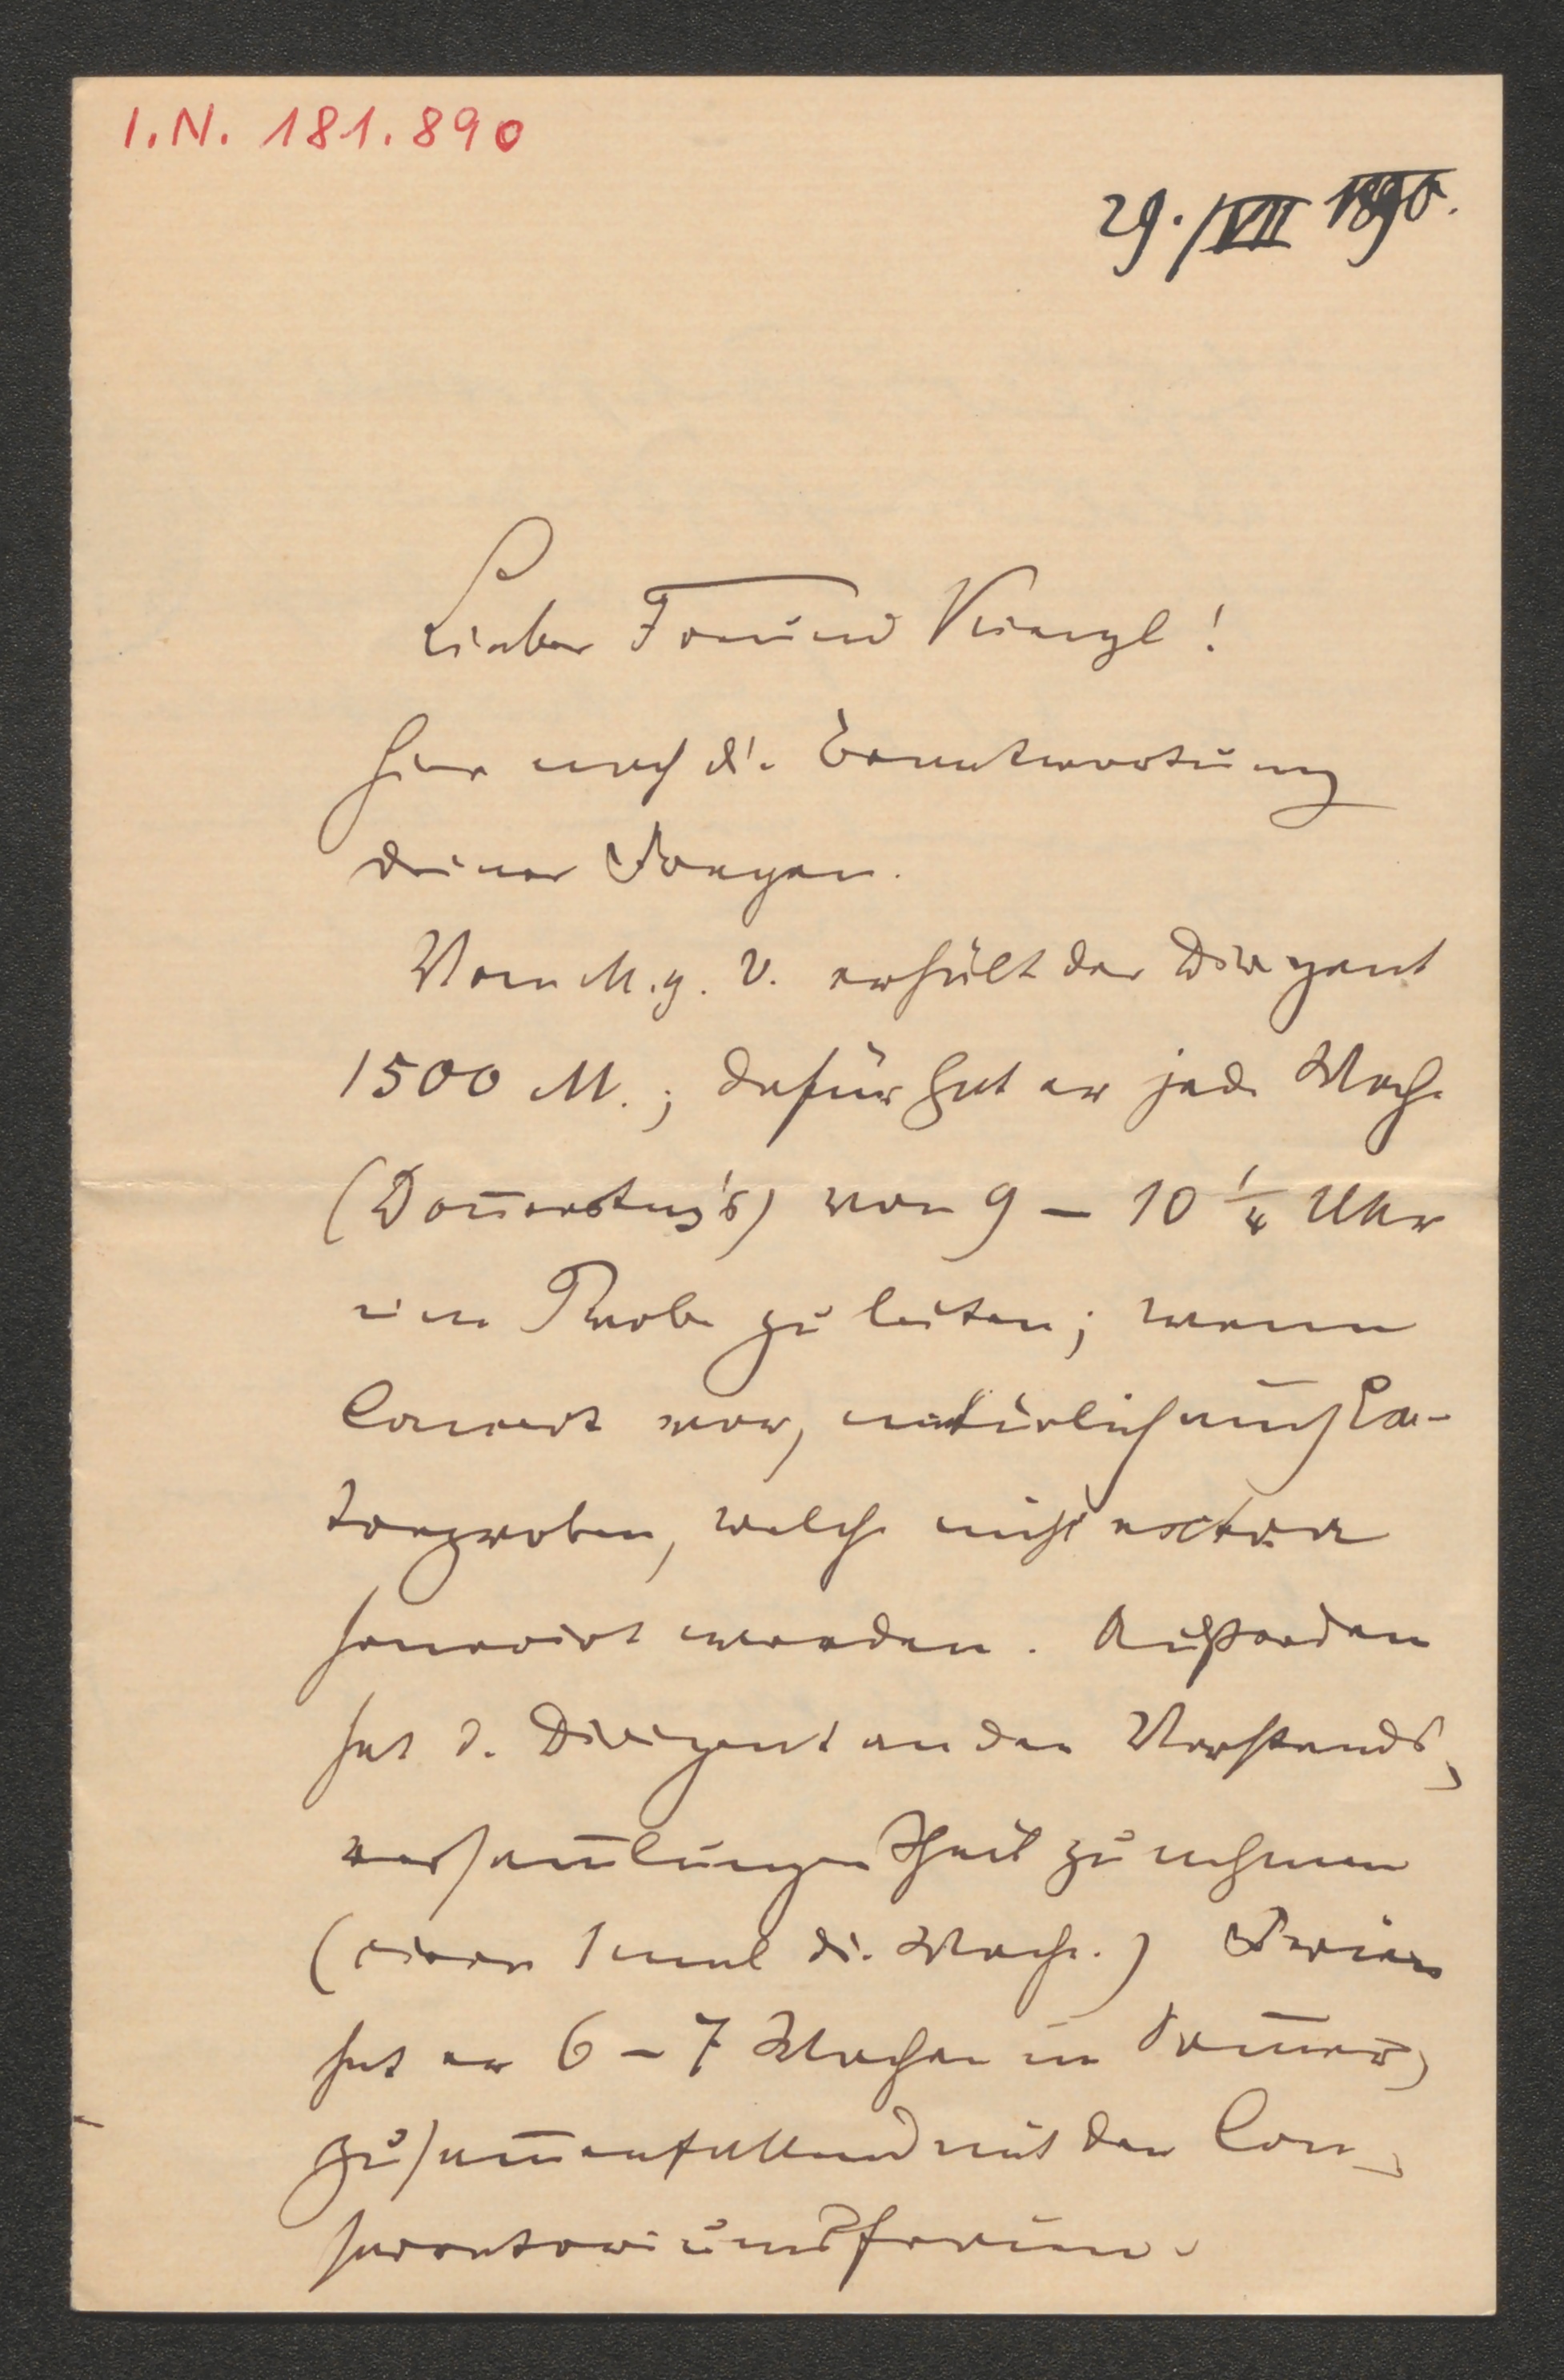 I.N. 181.890
29./VII 1890.
Lieber Freund Kienzl!
Hier noch die Beantwortung
deiner Fragen.
Vom M.g.V. erhält der Dirigent
1500 M.; dafür hat er jede Woche
(Doñerstag's) von 9 – 10 ¼ Uhr
eine Probe zu leiten; wenn
Concert war, natürlich auch Ex-
traproben, welche nicht extra
honorirt werden. Außerdem
hat d. Dirigent an den Vorstands-
versam̄lungen Theil zu nehmen
(circa 1 mal die Woche.) Ferien
hat er 6 – 7 Wochen im Som̄er,
zusam̄enfallend mit den Con-
servatoriumsferien.